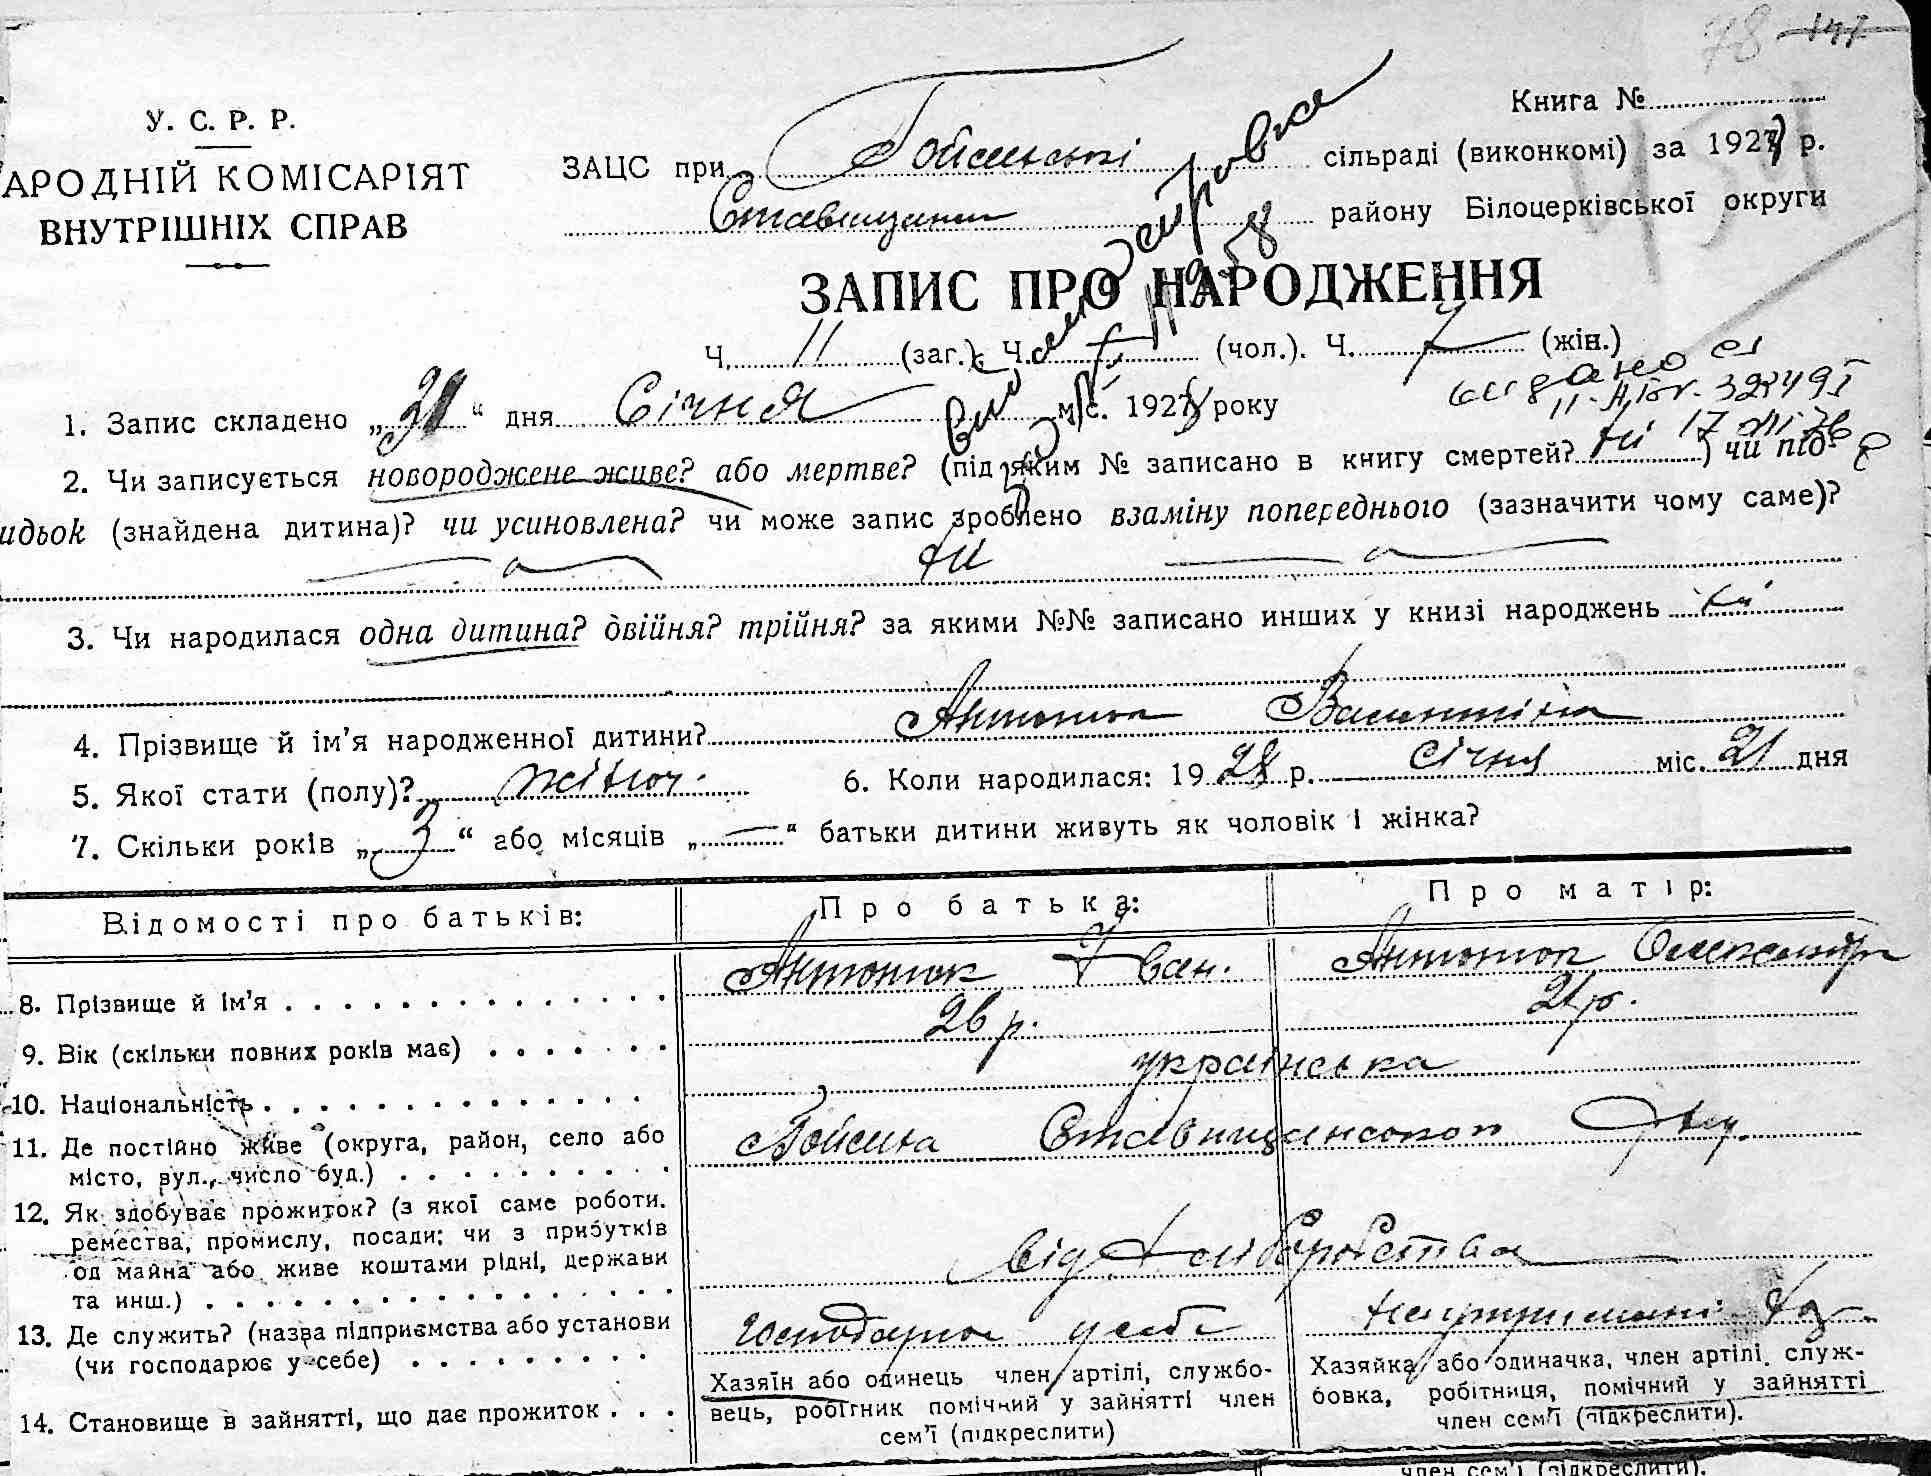 78 147
У. С. Р. Р.
АРОДНІЙ КОМІСАРІЯТ
ВНУТРІШНІХ СПРАВ
Книга №
ЗАЦС при Гойсинські сільраді (виконкомі) за 1927 р.
Ставищан району Білоцерківської округи
ЗАПИС ПРО НАРОДЖЕННЯ
1958
Ч. 11 (заг.). Ч. (чол.). Ч. 7 (жін.)
1. Запис складено „31“ дня Січня міс. 1928 року
2. Чи записується новороджене живе? або мертве? (під яким № записано в книгу смертей? ні ) чи під-
идьок (знайдена дитина)? чи усиновлена? чи може запис зроблено взаміну попереднього (зазначити чому саме)?
ні
3. Чи народилася одна дитина? двійня? трійня? за якими №№ записано инших у книзі народжень ні
4. Прізвище й ім'я народженної дитини? Антонюк Валентіна
5. Якої стати (полу)? жіноч. 6. Коли народилася: 1928 р. січня міс. 21 дня
7. Скільки років „3“ або місяців „—“ батьки дитини живуть як чоловік і жінка?
Відомості про батьків: Про батька: Про матір:
8. Прізвище й ім'я Антонюк Іван. Антонюк Олександра
9. Вік (скільки повних років має) 26 р. 21 р.
10. Національність українська
11. Де постійно живе (округа, район, село або
місто, вул., число буд.) Гойсиха Ставищанського
12. Як здобуває прожиток? (з якої саме роботи.
ремества, промислу, посади; чи з прибутків
од майна або живе коштами рідні, держави
та инш.) від хліборобства
13. Де служить? (назва підприємства або установи
(чи господарює у себе) господарює у себе на утриманні
14. Становище в зайнятті, що дає прожиток
Хазяїн або одинець член артілі, службо-
вець, робітник помічний у зайнятті член
сем'ї (підкреслити)
Хазяйка або одиначка, член артілі. служ-
бовка, робітниця, помічний у зайнятті
член сем'ї (підкреслити).
член сем'ї (підкреслити).